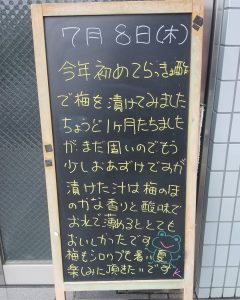 7月8日(木)
今年初めてらっきょ酢
で梅を漬けてみました
ちょうど1ヶ月たちました
がまだ固いのでもう
少しおあずけですが
漬けた汁は梅のほ
のかな香りと酸味で
お水で薄めるととても
おいしかったです
梅もシロップも暑い夏
楽しみに頂きたいです